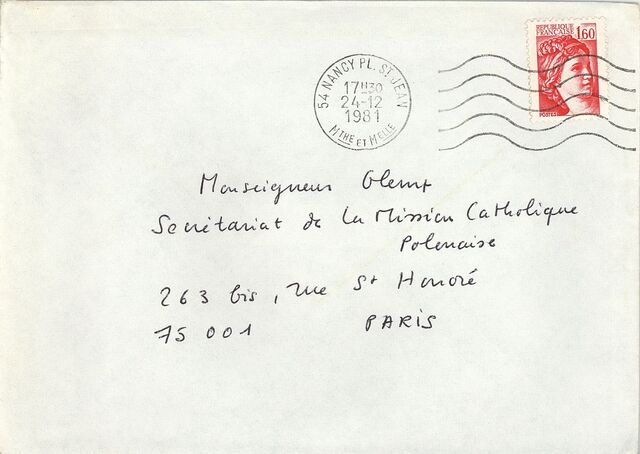 REPUBLIQUE
FRANÇAISE 1,60
POSTES
54 NANCY PL. ST-JEAN
17H30
24-12
1981
MTHE ET MELLE
Monseigneur Glemp
Secrétariat de la Mission Catholique
Polonaise
263 bis, rue St Honoré
75 001 PARIS